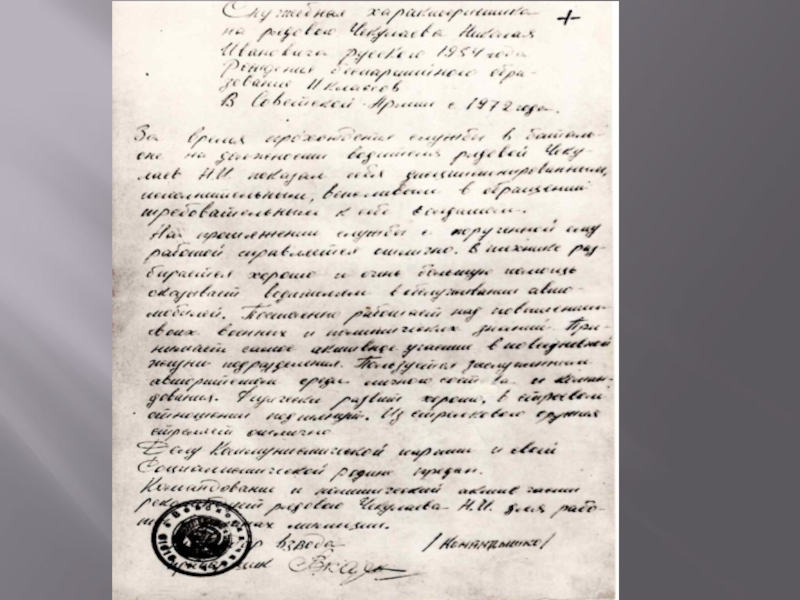 Служебная характеристика
на рядового Чекулаева Николая
Ивановича русского 1954 года
Рождения беспартийного обра-
зование 11 классов
В Советской Армии с 1972 года.
За время прохождения службы в баталь-
оне на должности водителя рядовой Чеку-
лаев Н.И показал себя дисциплинированным,
исполнительным, вежливым в обращении
требовательным к себе
На протяжении службы с порученной ему
работой справляется отлично. В технике раз-
бирается хорошо и очень большую помощь
оказывает водителям в обслуживании авто-
мобилей. Постоянно работает над повышением
своих военных и политических знаний. При-
нимает самое активное участие в повседневной
жизни подразделения. Пользуется заслуженным
авторитетом среди личного состава и коман-
дования. Физически развит хорошо, в строевом
отношении подтянут. Из стрелкового оружия
стреляет отлично
Делу Коммунистической партии и своей
Социалистической родине предан.
Командование и политический актив части
рядового Чекулаева Н.И. для рабо-
ах милиции.
взвода